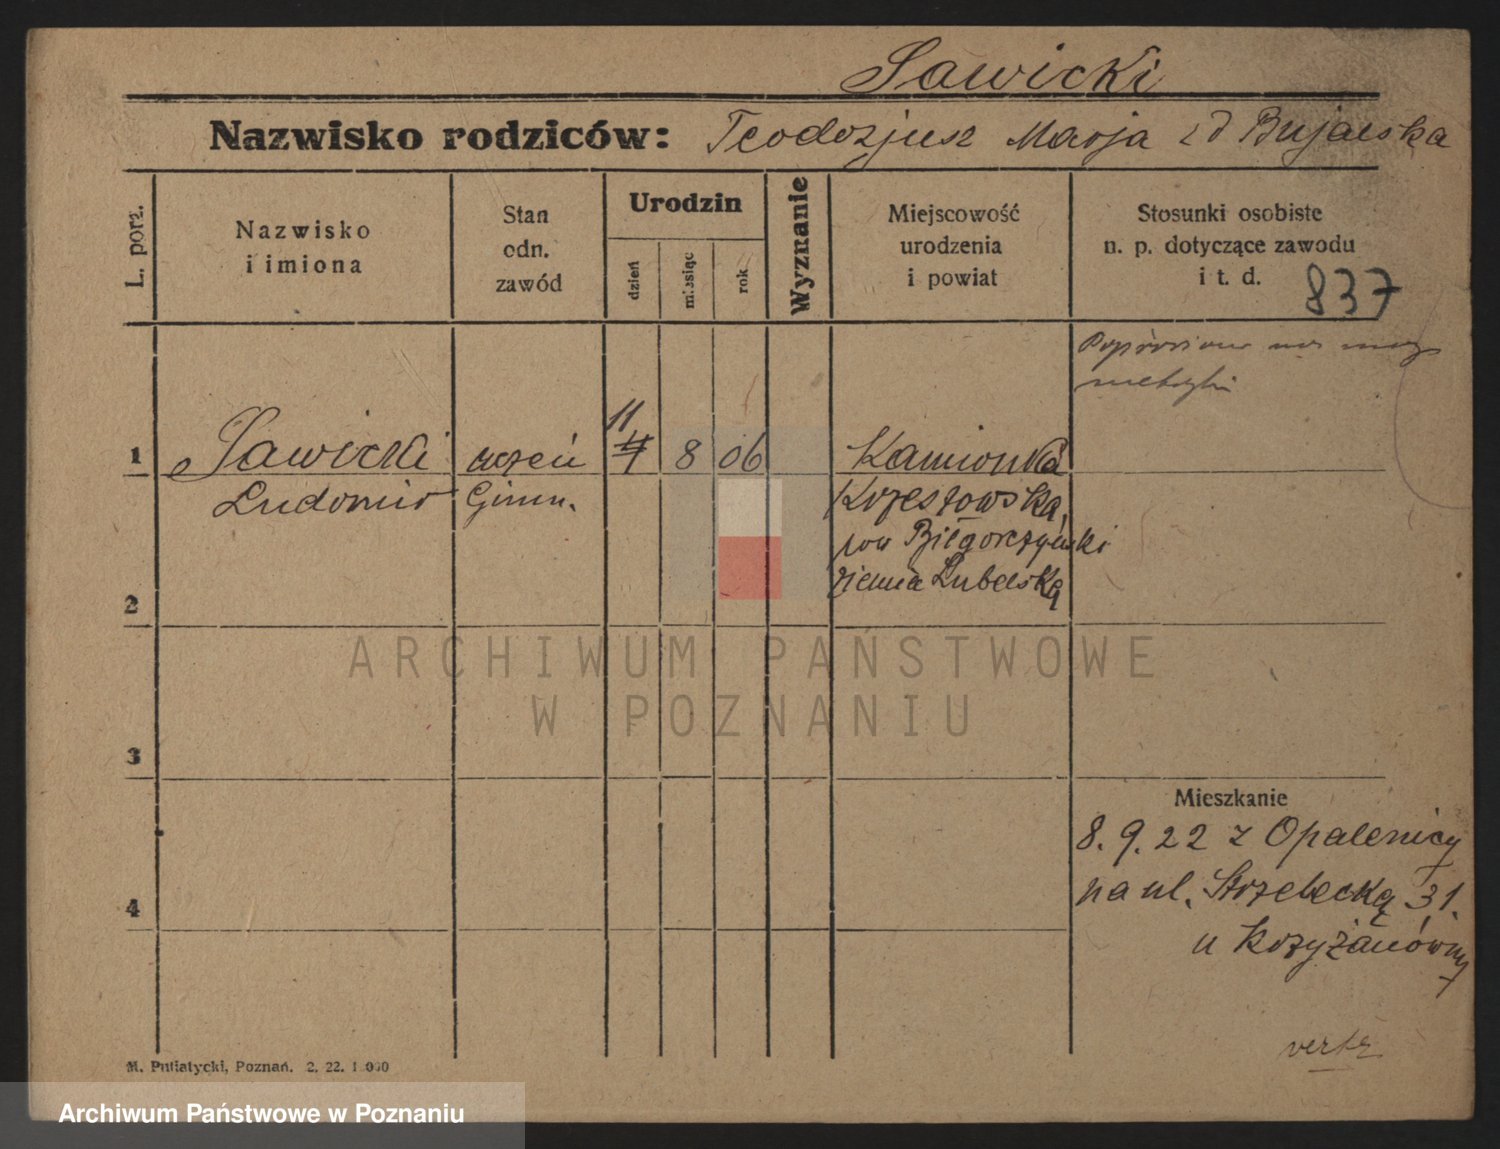 Sawicki
Nazwisko rodziców: Teodozjusz Marja zd Bujalska
L. porz.
Nazwisko
i imiona
Stan
odn.
zawód
Urodzin
dzień
miesiąc
rok
Wyznanie
Miejscowość
urodzenia
i powiat
Stosunki osobiste
n. p. dotyczące zawodu
i t. d.
837
1
Sawicki
uczeń
11
8
06
Kamionka
Ludomir
Gimn.
Krzestowska,
pow Biłgorczyński
ziemia Lubelska
2
3
4
Mieszkanie
8. 9. 22 z Opalenicy
na ul. Strzelecką 31.
u Krzyżanówny
verte
M. Putiatycki, Poznań. 2. 22. 1 000
ARCHIWUM PAŃSTWOWE
W POZNANIU
Archiwum Państwowe w Poznaniu